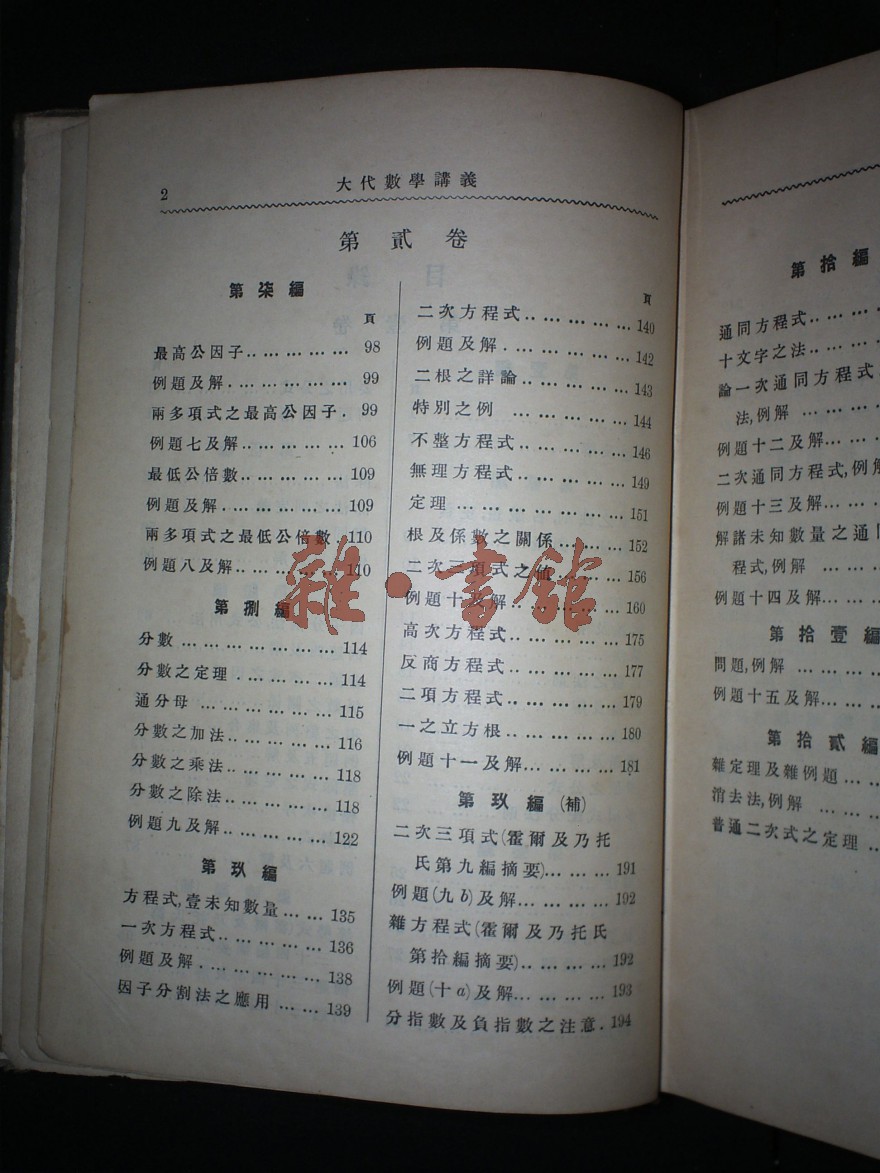 2
大代數學講義
第貳卷
第柒編
頁
最高公因子.. ... ... ... ... 98
例題及解. ... ... ... ... ... 99
兩多項式之最高公因子. 99
例題七及解.. ... ... ... ... 106
最低公倍數.. ... ... ... ... 109
例題及解.. ... ... ... ... ... 109
兩多項式之最低公倍數. 110
例題八及解.. ... ... ... ... 110
第捌編
分數 ... ... ... ... ... ... 114
分數之定理. ... ... ... ... 114
通分母 ... ... ... ... ... 115
分數之加法.. ... ... ... ... 116
分數之乘法.. ... ... ... ... 118
分數之除法.. ... ... ... ... 118
例題九及解.. ... ... ... ... 122
第玖編
方程式,壹未知數量... ... 135
一次方程式.. ... ... ... ... 136
例題及解. ... ... ... ... ... 138
因子分割法之應用 ... ... 139
頁
二次方程式.. ... ... ... ... 140
例題及解. ... ... ... ... ... 142
二根之詳論.. ... ... ... ... 143
特別之例 ... ... ... ... ... 144
不整方程式.. ... ... ... ... 146
無理方程式.. ... ... ... ... 149
定理 ... ... ... ... ... ... ... 151
根及係數之關係... ... ... 152
二次三項式之値.. ... ... 156
例題十及解... ... ... ... ... 160
高次方程式.. ... ... ... ... 175
反商方程式.. ... ... ... ... 177
二項方程式.. ... ... ... ... 179
一之立方根.. ... ... ... ... 180
例題十一及解... ... ... ... 181
第玖編(補)
二次三項式(霍爾及乃托
氏第九編摘要)... ... ... 191
例題(九b)及解... ... ... 192
雜方程式(霍爾及乃托氏
第拾編摘要).. ... ... ... 192
例題(十a)及解... ... ... 193
分指數及負指數之注意. 194
第拾編
通同方程式.. ... ...
十文字之法... ...
論一次通同方程式
法,例解 ... ... ...
例題十二及解... ...
二次通同方程式,例解
例題十三及解... ...
解諸未知數量之通同
程式,例解 ... ...
例題十四及解... ...
第拾壹編
問題,例解 ... ... ...
例題十五及解... ...
第拾貳編
雜定理及雜例題 ... ...
消去法,例解 ... ...
普通二次式之定理 ...
雜·書館